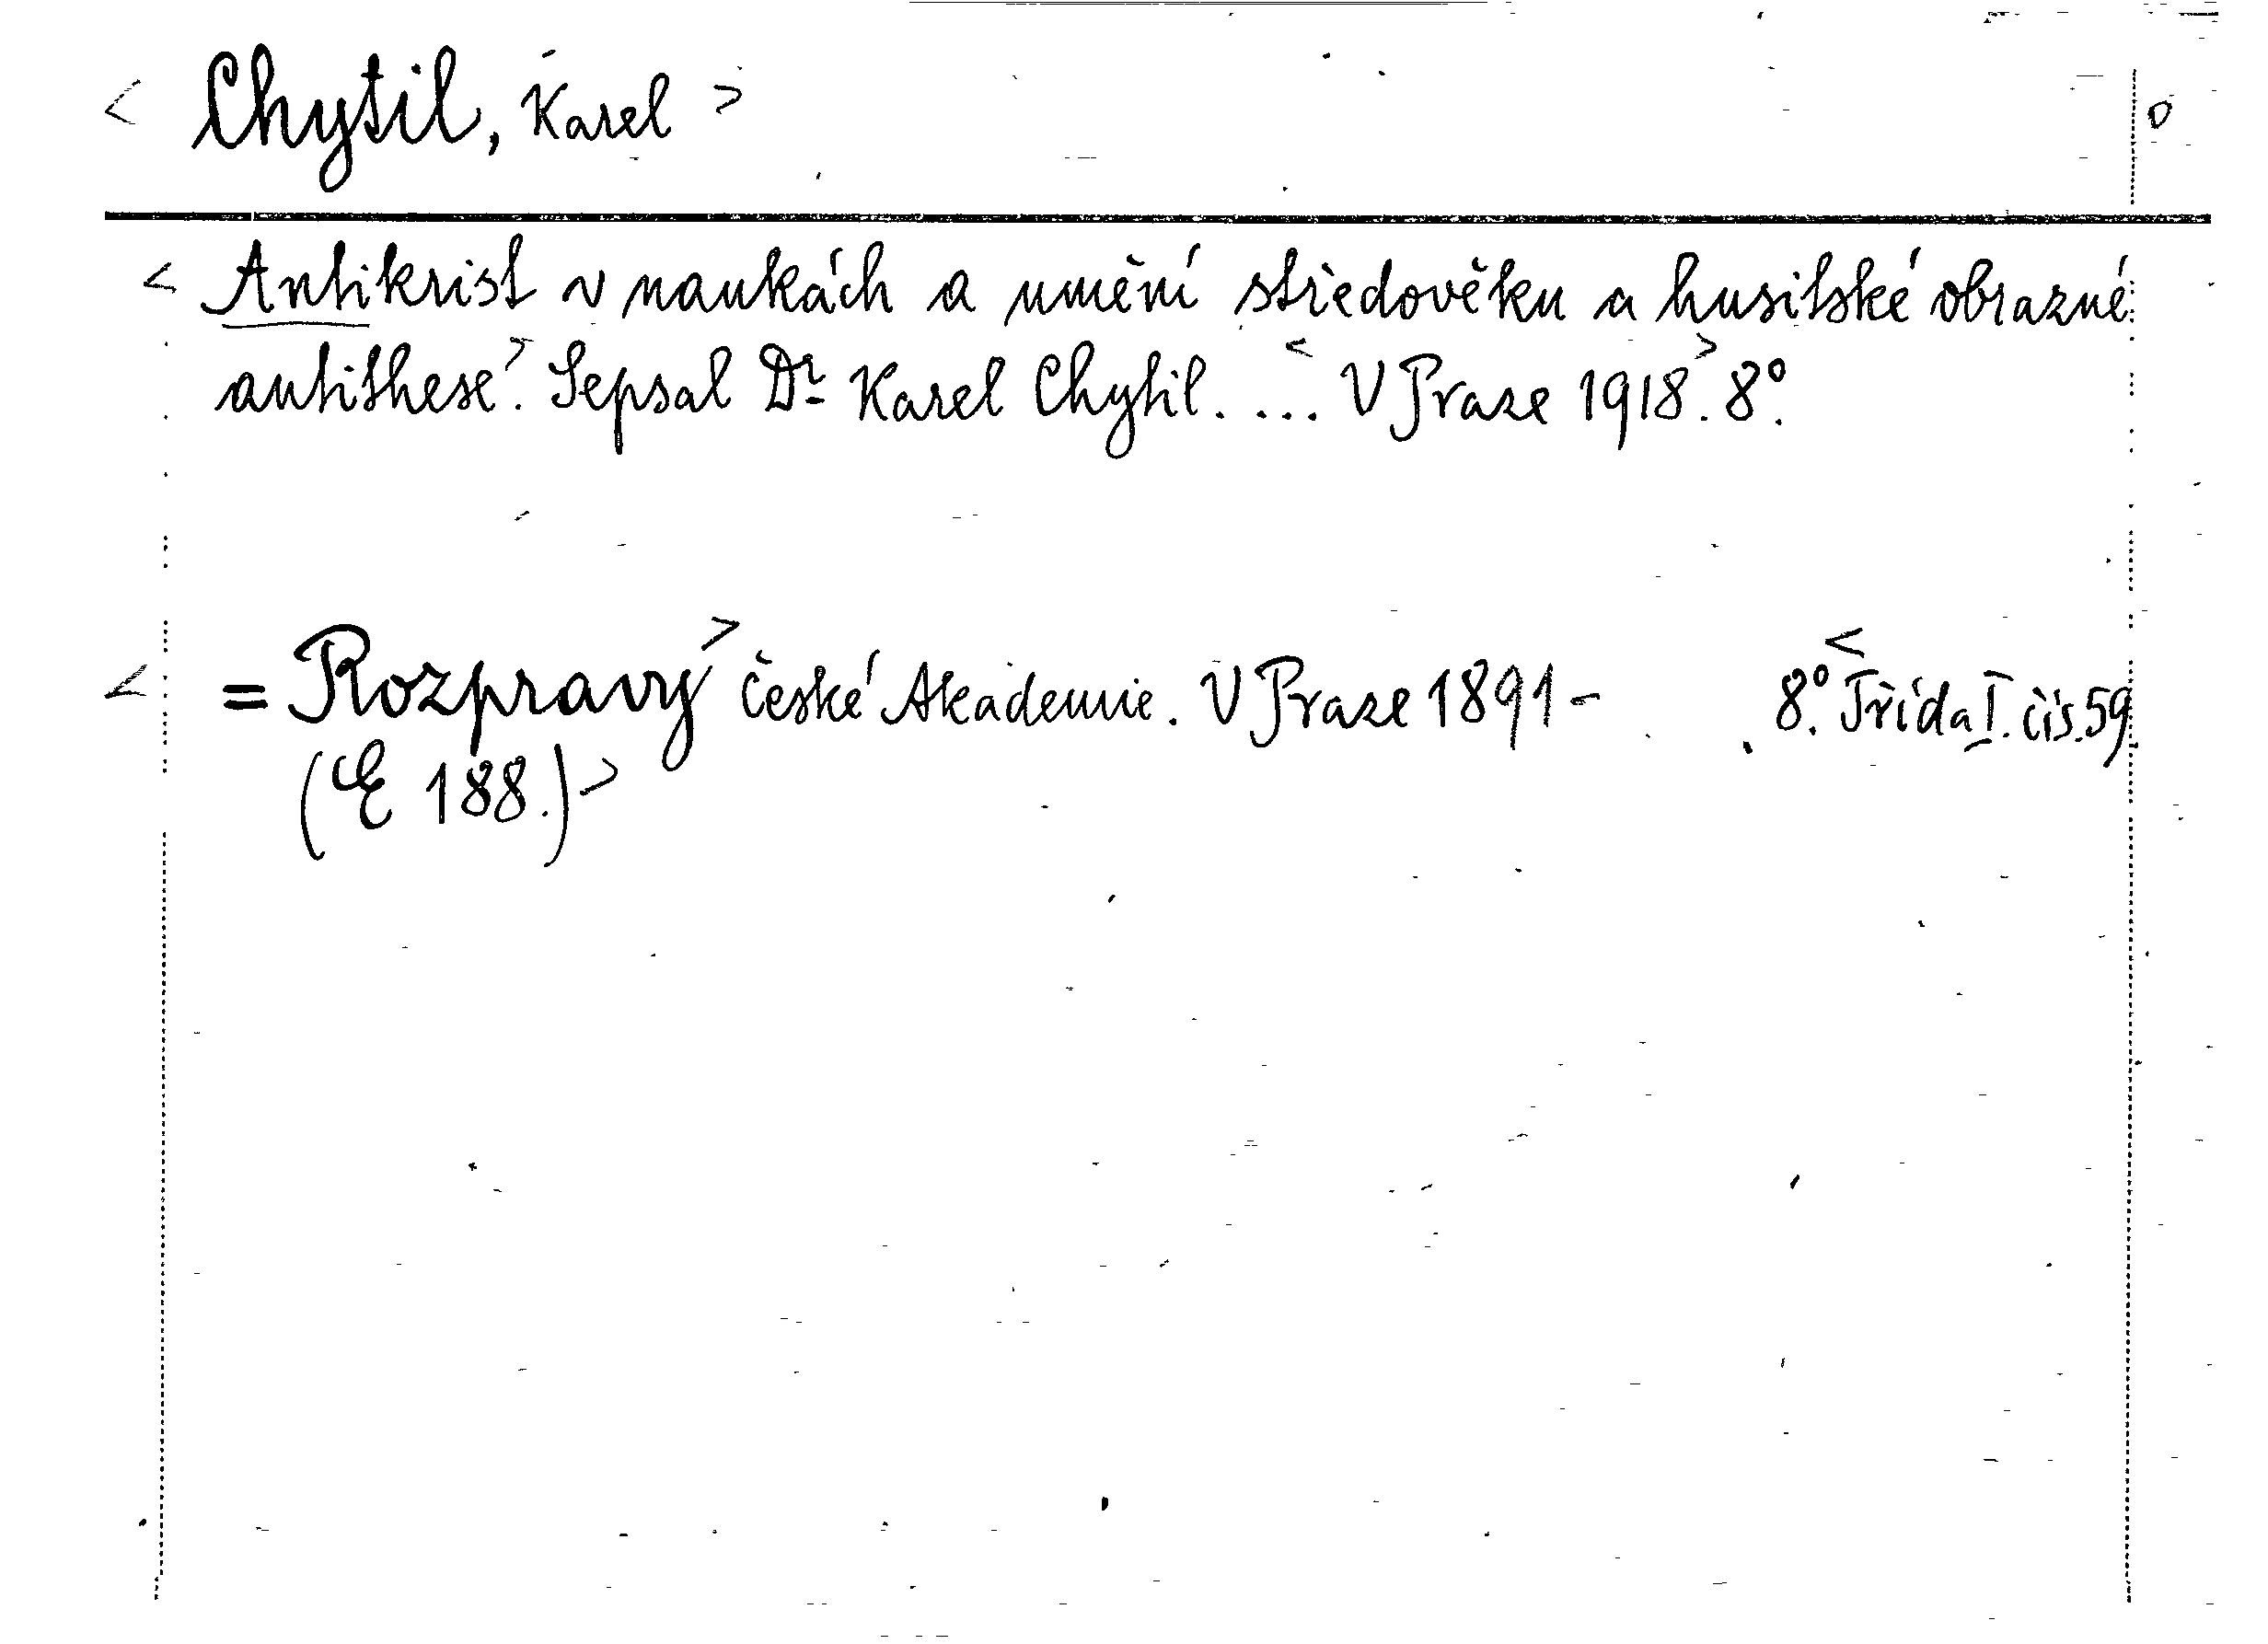 < Chytil, Karel > 0
< Antikrist v naukách a umění středověku a husitské obrazné
antithese>. Sepsal Dr Karel Chytil. ... <V Praze 1918>. 8°.
< = Rozpravy> České Akademie. V Praze 1891- . 8°. <Třída I. čís. 59
(E 188.)>